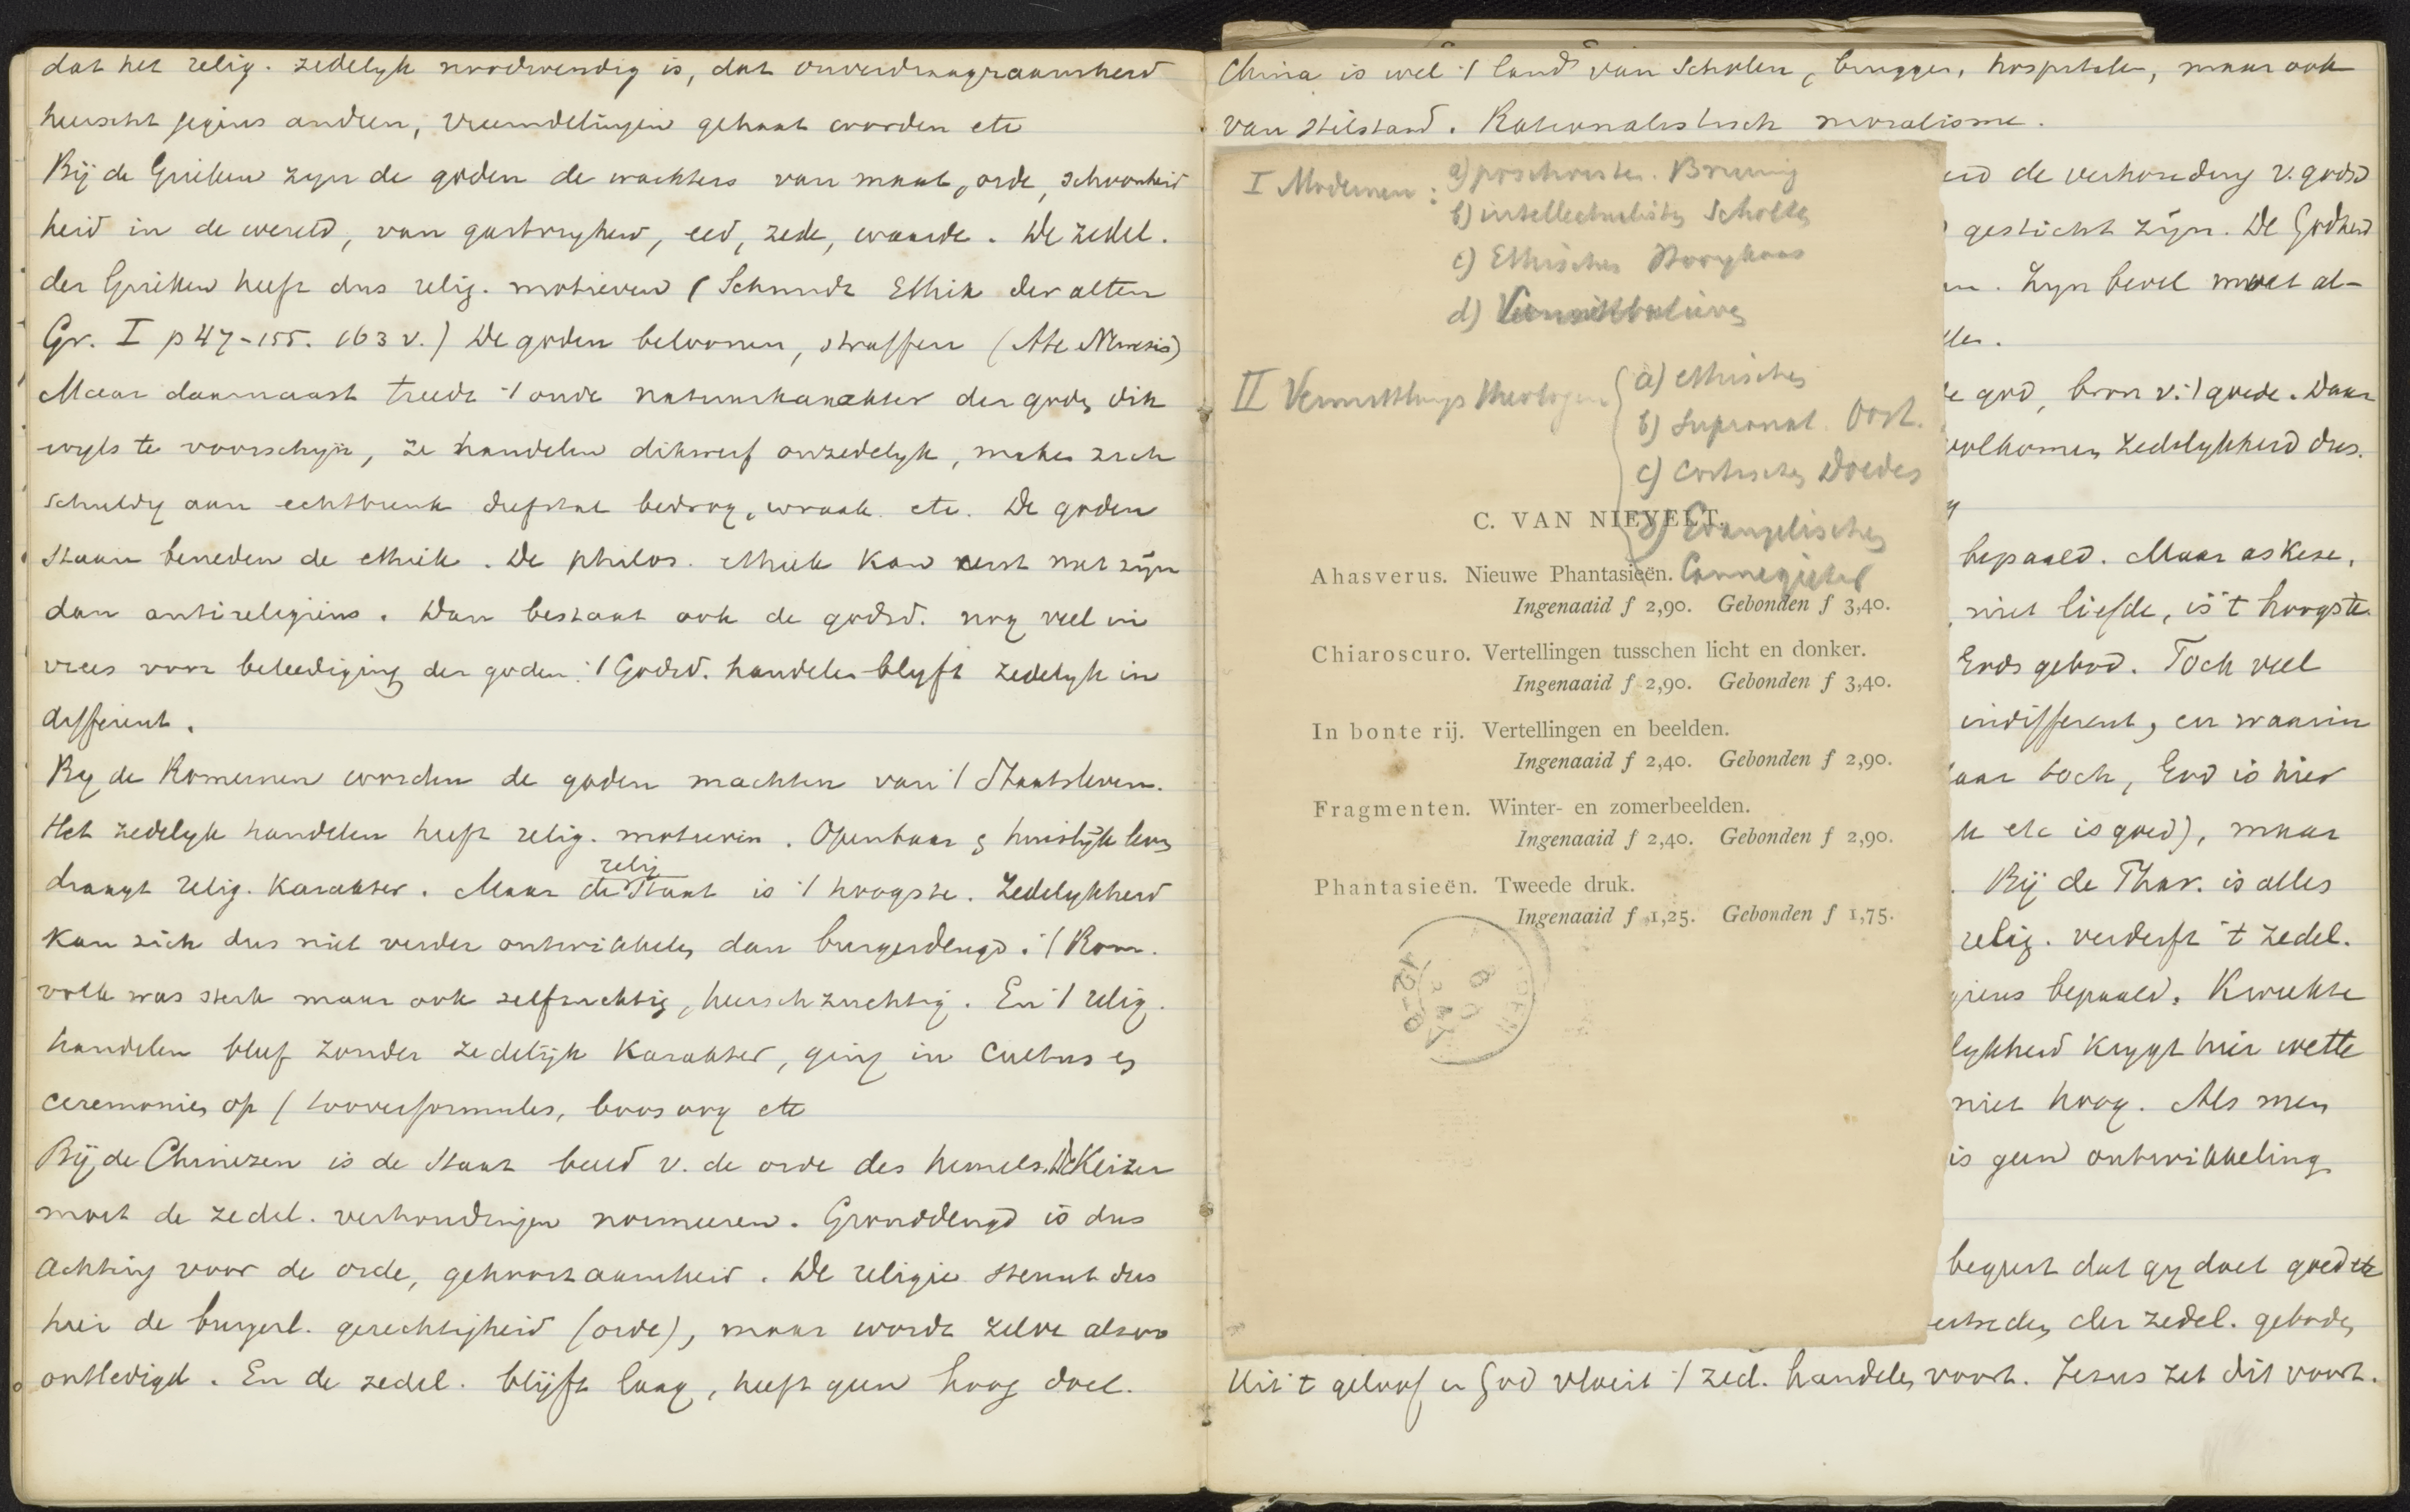 dat het relig. zedelyk noodwendig is, dat onverdraagzaamheid
heerscht jegens andren, vreemdelingen gehaat worden etc
Bij de Grieken zyn de goden de wachters van maat, orde, schoonheid
heid in de wereld, van gastvryheid, eed, zede, waarde. De zedel.
der Grieken heeft dus relig. motieven (Schmidt Ethik der alten
Gr. I p 47-155. 163 v.) De goden beloonen, straffen (Ate Nemesis)
Maar daarnaast treedt 't oude natuurkarakter der goden dik
wyls te voorschijn, ze handelen dikwerf onzedelyk, maken zich
schuldig aan echtbreuk diefstal bedrog, wraak etc. De goden
staan beneden de ethiek. De philos. ethiek kon eerst niet zijn
dan antireligieus. Dan bestaat ook de godsd. nog veel in
vrees voor beleediging der goden. 't Godsd. handelen blyft zedelyk in
different.
By de Romeinen worden de goden machten van 't Staatsleven.
Het zedelyk handelen heeft relig. motieven. Openbaar en huislijk leven
draagt relig. karakter. Maar de Staat is 't hoogste. Zedelykheid
relig
kan zich dus niet verder ontwikkelen dan burgerdeugd. 't Rom.
volk was sterk maar ook zelfzuchtig, heerschzuchtig. En 't relig.
handelen bleef zonder zedelijk karakter, ging in cultus en
ceremonien op / tooverformules, etc
Bij de Chinezen is de Staat beeld v. de orde des hemels. De Keizer
moet de zedel. verhoudingen normeeren. Gronddeugd is dus
achting voor de orde, gehoorzaamheid. De religie steunt dus
hier de burgerl. gerechtigheid (orde), maar wordt zelve alzoo
ontledigd. En de zedel. blijft laag, heeft geen hoog doel.
China is wel 't land van Scholen, bruggen, hospitalen, maar ook
van stilstand. Rationalistisch moralisme.
I Modernen: a) Bruining
b) intellectualisten Scholten
c) Ethischen Hooykaas
d)
II Vermittlungs theologen
a) ethischen
b) Supranat. Oost.
c) Critischen Doedes
d) Evangelischen
Cannegieter
C. VAN NIEVELT.
Ahasverus. Nieuwe Phantasieën.
Ingenaaid f 2,90. Gebonden f 3,40.
Chiaroscuro. Vertellingen tusschen licht en donker.
Ingenaaid f 2,90. Gebonden f 3,40.
In bonte rij. Vertellingen en beelden.
Ingenaaid f 2,40. Gebonden f 2,90.
Fragmenten. Winter- en zomerbeelden.
Ingenaaid f 2,40. Gebonden f 2,90.
Phantasieën. Tweede druk.
Ingenaaid f 1,25. Gebonden f 1,75.
de verhouding v. godsd
gesticht zijn. De Godheid
Zyn bevel moet al-
god, bron v. 't goede. Daar
volkomen zedelykheid dus.
bepaald. Maar askese,
niet liefde, is 't hoogste
Gods gebod. Toch veel
indifferent, en waarin
toch, God is hier
etc is goed), maar
Bij de Phar. is alles
relig. verderft 't zedel.
bepaald. Kweekte
krygt hier wette
niet hoog. Als men
is geen ontwikkeling
begeert dat gy doet goed etc
der zedel. geboden
Uit 't geloof in God vloeit 't zed. handelen voort. Jezus zet dit voort.